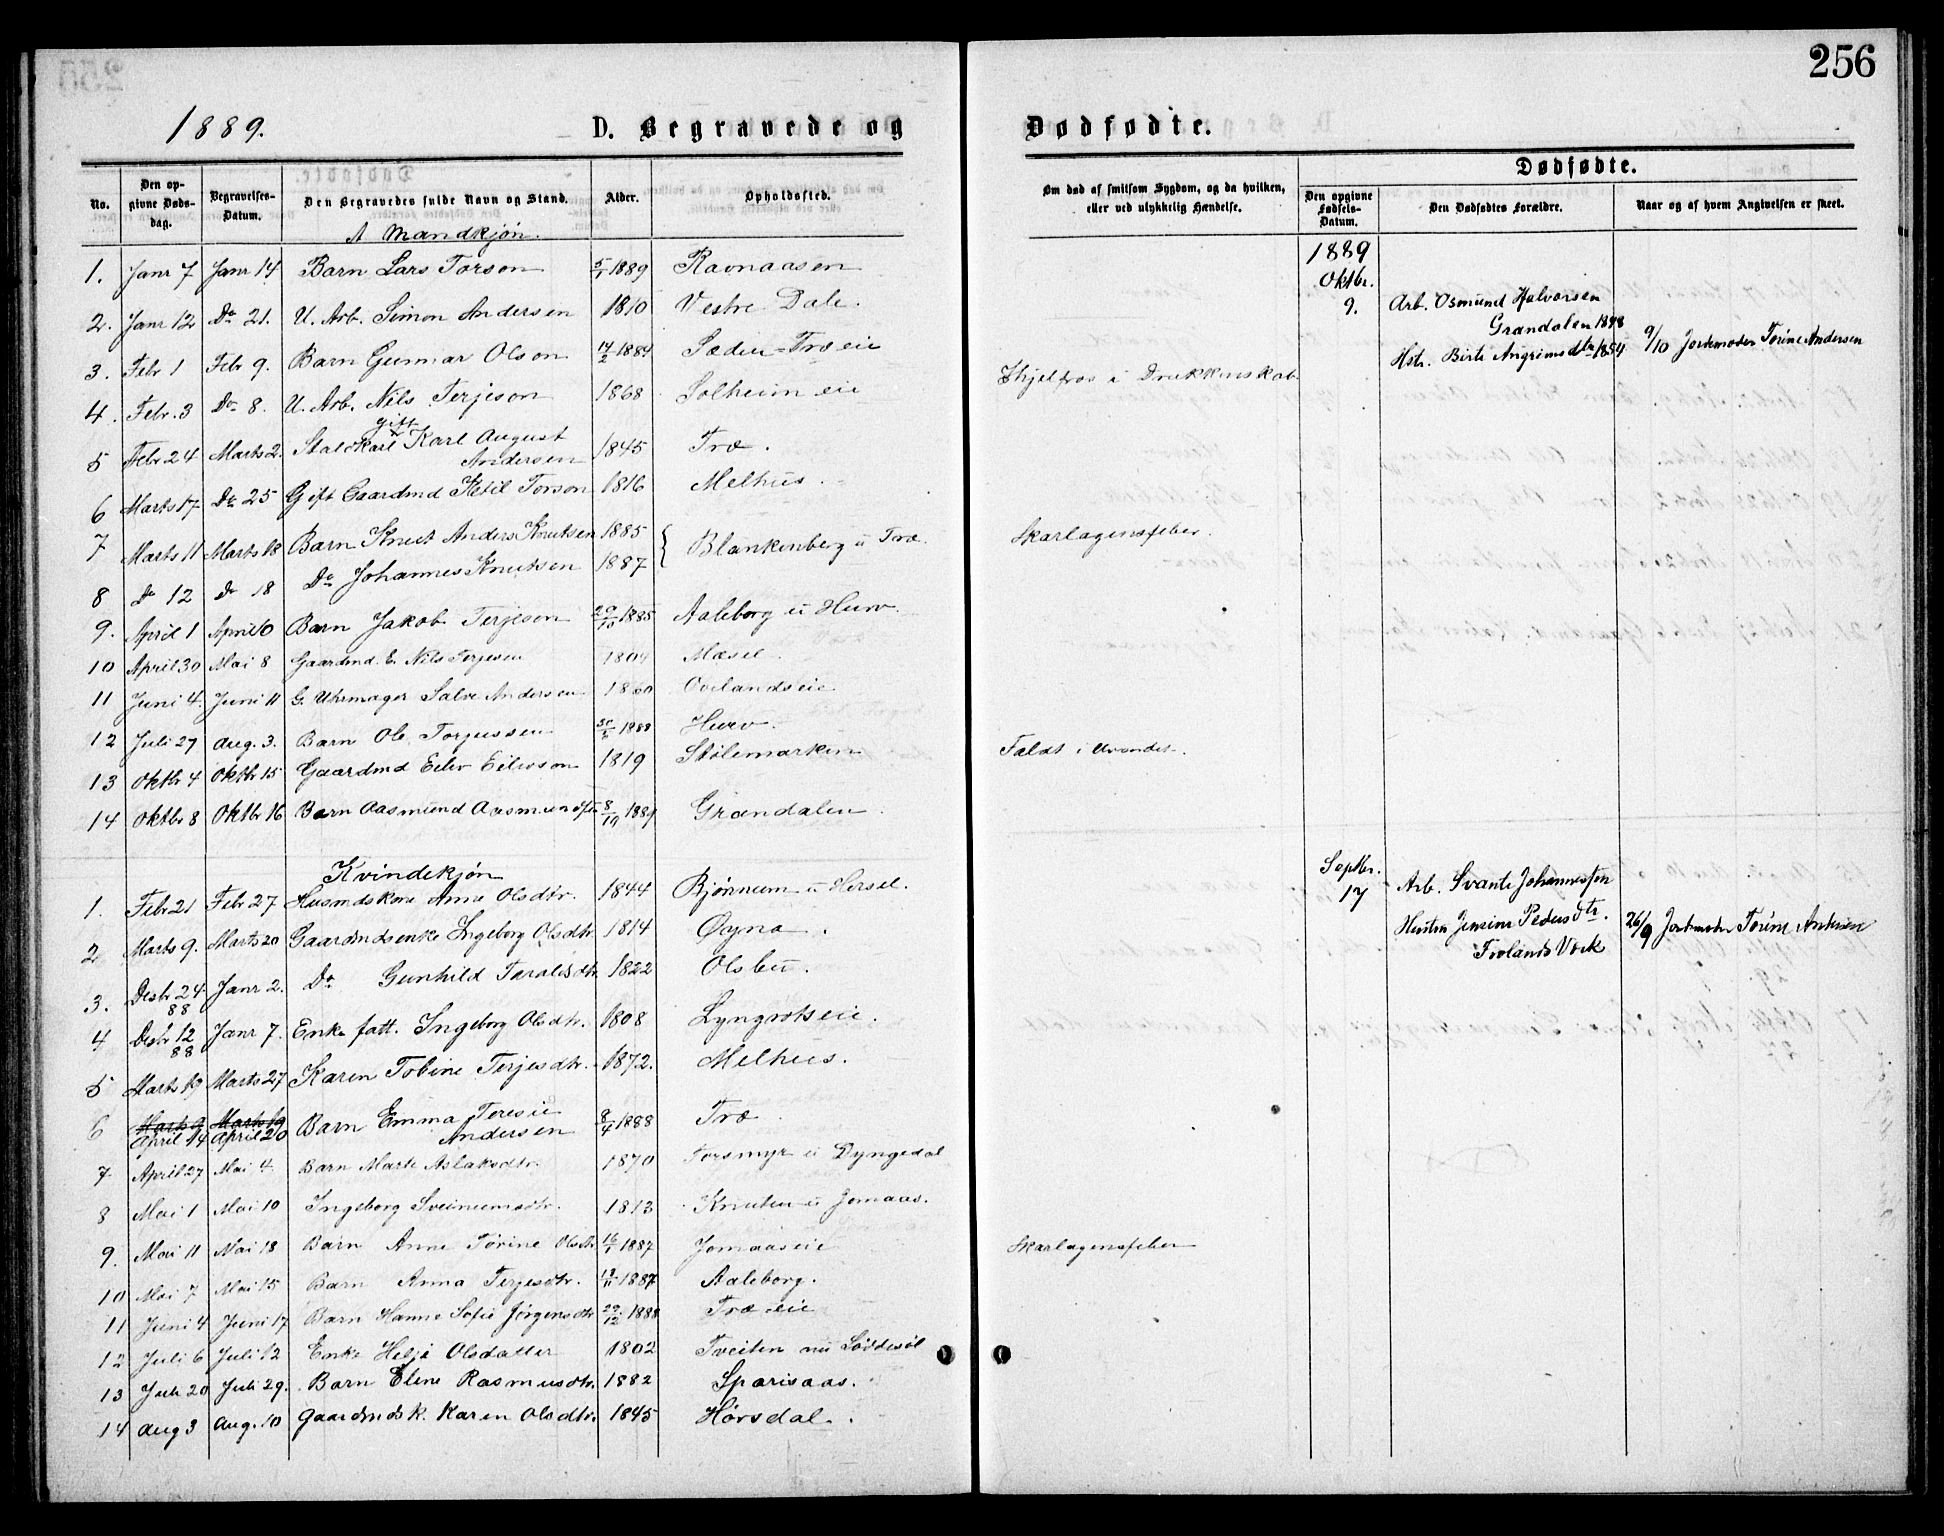 256
1889.
D. Begravede og Dødfødte.
No.
Den opgivne Dødsdag.
Begravelses-Datum.
Den Begravedes fulde Navn og Stand.
Alder.
Opholdssted.
Om død af smitsom Sygdom, og da hvilken, eller ved ulykkelig Hændelse.
Dødfødte.
Den opgivne Fødsels-Datum.
Den Dødfødtes Forældre.
Naar og af hvem Angivelsen er skeet.
A Mandkjøn.
1. Janr 7 Janr 14 Barn Lars Torson 5/1 1889 Ravnaasen
2. Janr 12 Do 21. U. Arb. Simon Andersen 1810 Vestre Dale.
3. Febr 1 Febr 9. Barn Gunnar Olson 14/2 1884
4. Febr. 3 Do 8. U. Arb. Nils Terjeson 1868 Solheim eie Ihjelfros i Drukkenskab.
5 Febr 24 Marts 2. Staldkarl gift Karl August
Andersen 1845 Træ.
6 Marts 17 Do 25 Gift Gaardmd Ketil Torson 1816 Melhus.
7 Marts 11 Marts 18 Barn Knut Anders Knutsen 1885 { Blankenberg u Træ. Skarlagensfeber.
8 Do 12 Do 18 Do Johannes Knutsen 1887
9. April 1 April 6 Barn Jakob Terjeson 29/10 1885 Aaleborg u Hurv.
10 April 30 Mai 8 Gaardmd. E. Nils Terjesen 1804 Mæsel.
11 Juni 4. Juni 11 G. Uhrmager Salve Andersen 1860 Ovelandseie
12 Juli 27 Aug. 3. Barn Ole Torjussen 1888 Hurv.
13 Oktbr 4 Oktbr 15 Gaardmd Eilev Eilevson 1819 Stølemarken Faldt i Urvandet.
14 Oktbr 8 Oktbr 16 Barn Aasmund 8/10 1889 Grændalen
1889
Oktbr.
9.
Arb. Osmund Halvorsen
Grændalen 1848
Hst. Birte Angrimsdtr 1854
9/10 Jordemoder Tørine Andersen
Kvindekjøn
1. Febr 21 Febr 27 Husmdskone Anne Olsdtr. 1844 Bjørnum u Hersel.
2 Marts 9. Marts 20 Gaardmdsenke Ingeborg Olsdtr 1814 Øyna.
3. Desbr 24 88 Janr 2. Do Gunhild Taraldsdtr. 1822 Olsbu.
4 Desbr 12 88 Janr 7. Enke fatt. Ingeborg Olsdtr. 1808 Lyngrotseie.
5 Marts 19 Marts 27 Karen Tobine Terjesdtr. 1872. Melhus.
6 Marts 9 Marts 19
April 14 April 20 Barn Emma Teresie
Andersen 8/4 1888 Træ
7 April 27 Mai 4. Barn Marte Aslaksdtr. 1870 Torsmyr u Dyngedal
8 Mai 1 Mai 10 Ingeborg 1813 Knuten u Jomaas.
9. Mai 11 Mai 18 Barn Anne Tørine Olsdtr 16/1 1887 Jomaaseie Skarlagensfeber
10 Mai 7 Mai 15 Barn Anna Terjesdtr. 18/11 1887 Aaleborg.
11 Juni 4 Juni 17 Barn Hanne Sofie Jørgensdtr 29/12 1888 Træ eie
12 Juli 6 Juli 12 Enke Helje Olsdatter 1802 Tveiten
13 Juli 20 Juli 29. Barn Elene Rasmusdtr. 1882 Sparisaas.
14 Aug 3 Aug. 10 Gaardmdsk. Karen Olsdtr. 1845 Hørsdal.
Septbr.
17
Arb. Svante Johannessen
Hustru Jensine Pedersdtr.
Frolands Værk
26/9 Jordemoder Tørine Andersen